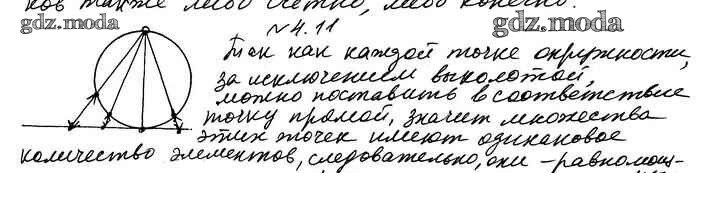 ков также либо счетно, либо конечно.
gdz.moda
gdz.moda
№4.11
Так как каждой точке окружности,
за исключением выколотой,
можно поставить в соответствие
точку прямой, значит множества
этих точек имеют одинаковое
количество элементов, следовательно, они - равномощ-